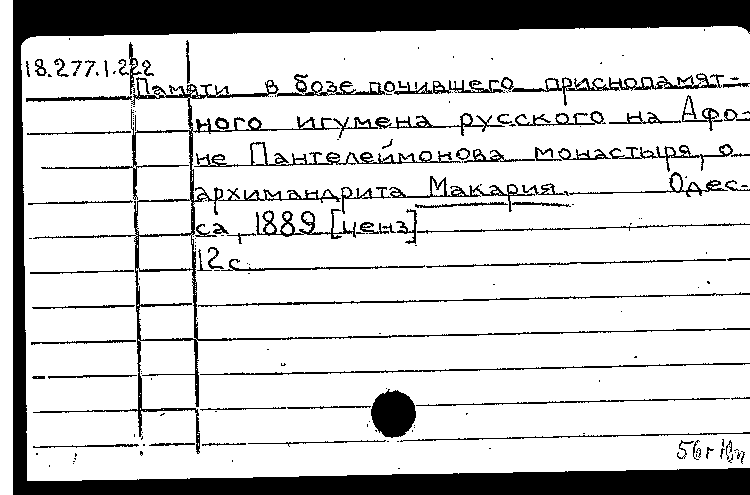 18.277.1.222
Памяти в бозе почившего приснопамят-
ного игумена русского на Афо-
не Пантелеймонова монастыря, о.
архимандрита Макария. Одес-
са, 1889 [ценз]
12 с.
56г